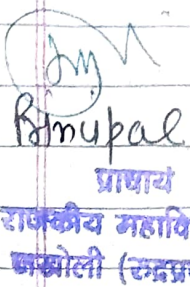 Binupal
प्राचार्य
राजकीय महावि
जखोली (रुद्रप्र